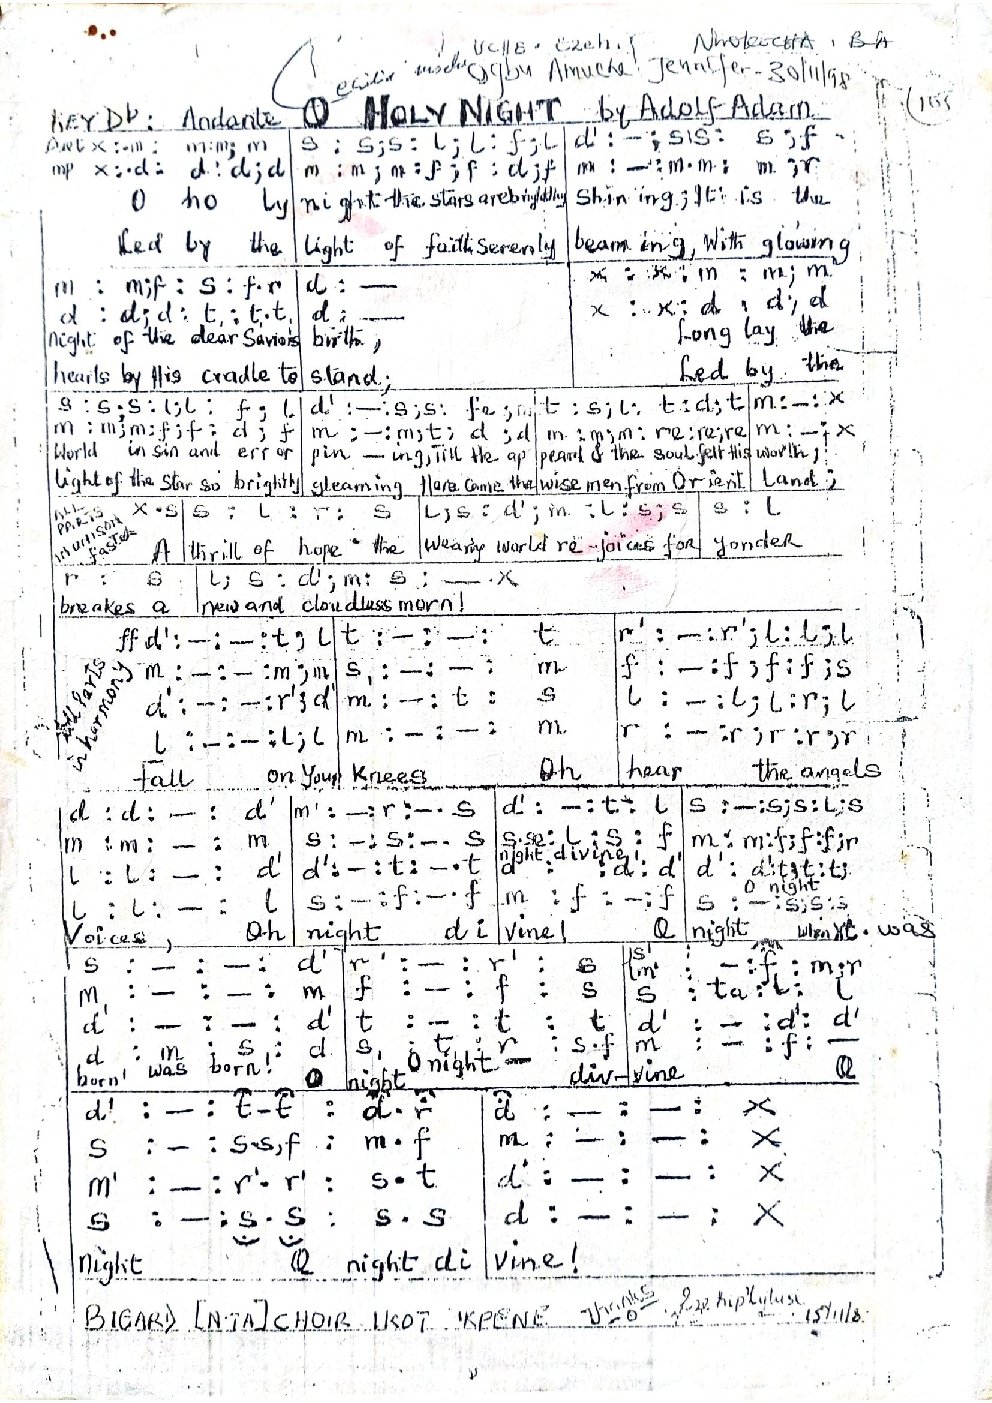 Ogbu Amucha Jennifer - 30/11/98
KEY Db: Andante O HOLY NIGHT by Adolf Adam
x : . m : m : m ; m | s : s ; s : l ; l : f ; l | d' : - ; s | s : s ; f
mp x : . d : d : d ; d | m : m ; m : f ; f : d ; f | m : - : m . m : m ; r
O ho ly night the stars are brightly Shin ing; It is the
Led by the light of faith Serenly beam ing, With glowing
m : m ; f : s : f . r | d : — | x : x : m : m ; m
d : d ; d : t, : t, . t, | d : — | x : x : d : d ; d
night of the dear Saviors birth, Long lay the
hearts by His cradle to stand; Led by the
s : s ; s : l ; l : f ; l | d' : - : s ; s : fe ; m | t : s ; l : t : d ; t | m : - : x
m : m ; m : f ; f : d ; f | m : - : m ; t ; d ; d | m : m ; m : re : re ; re | m : - ; x
World in sin and error pin — ing, Till He ap peard & the soul felt His worth;
Light of the Star so brightly gleaming Here came the wise men from Orient Land;
ALL PARTS IN UNISON faster
x . s | s : l : r : s | l ; s : d' ; m : l : s ; s | s : l
A thrill of hope the Weary world re-joices for yonder
r : s | l ; s : d' ; m : s : — . x
breakes a new and cloudless morn!
All Parts in harmony
ff d' : - : - : t ; l | t : - : - : t | r' : - : r' ; l : l ; l
m : - : - : m ; m | s, : - : - : m | f : - : f ; f : f ; s
d' : - : - : r' ; d' | m : - : t : s | l : - : l ; l : r ; l
l : - : - : l ; l | m : - : - : m | r : - : r ; r : r ; r
fall on Your Knees Oh hear the angels
d : d : - : d' | m' : - : r : - . s | d' : - : t : l | s : - : s ; s : l ; s
m : m : - : m | s : - : s : - . s | s . se : l : s : f | m : m : f ; f : f ; r
night divine!
l : l : - : d' | d' : - : t : - . t | d' : d : d' | d' : d' : t ; t : t ;
O night
l : l : - : l | s : - : f : - . f | m : f : - ; f | s : - : s ; s : s
Voices, Oh night di vine! O night when it was
s : - : - : d' | r' : - : r' : s | s' m' : - : f : m ; r
m, : - : - : m | f : - : f : s | s : ta : l : l
d' : - : - : d' | t : - : t : t | d' : - : d' : d'
d : m : s : d | s, : t, : r : s . f | m : - : f : —
born! was born! O night O night — div-vine O
d' : - : t - t : d . r | d : — : — : x
s : - : s . s , f : m . f | m : — : — : x
m' : - : r' . r' : s . t | d' : — : — : x
s : - : s . s : s . s | d : — : — : x
night O night di vine!
BIGARD [N·TA] CHOIR IKOT 'KPENE